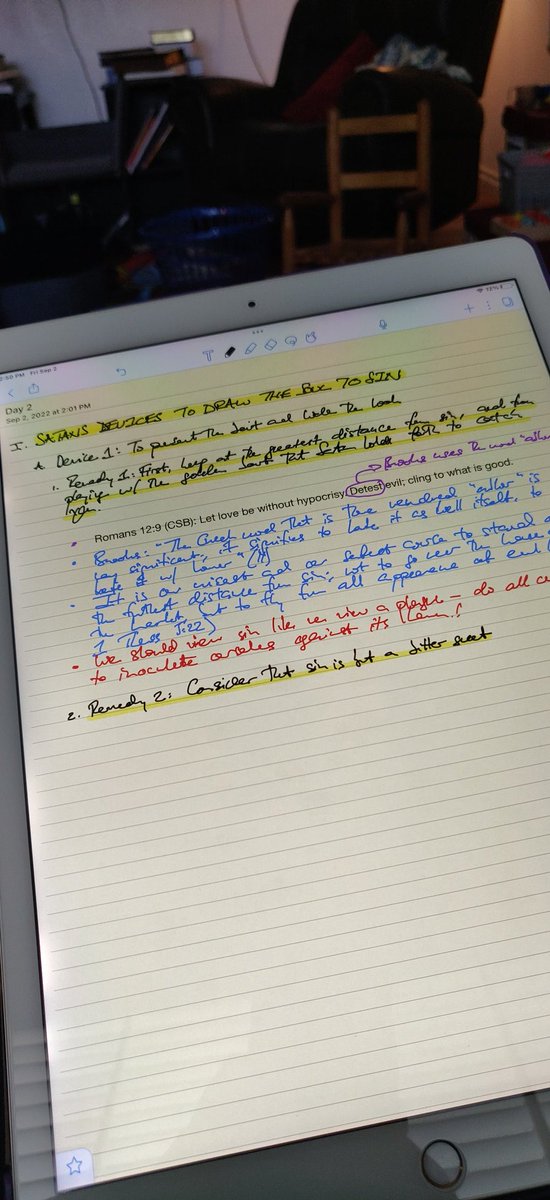 2:50 PM Fri Sep 2
72%
Day 2
Sep 2, 2022 at 2:01 PM
I. SATAN'S DEVICES TO DRAW THE SOUL TO SIN
A. Device 1: To present the bait and hide the hook
1. Remedy 1: First, keep at the greatest distance from sin, and from
playing w/ the golden bait that Satan holds forth to catch
Brooks uses the word "abhor"
Romans 12:9 (CSB): Let love be without hypocrisy. Detest evil; cling to what is good.
• Brooks: "The Greek word that is rendered "abhor" is
very significant; it signifies to hate it as hell itself, to
hate it w/ horror"
• It is our wisest and our safest course to stand at
the furthest distance from sin; not to go near the house of
the harlot, but to fly from all appearance of evil (
1 Thess 5:22)
• We should view sin like we view a plague - do all we
to inoculate ourselves against its
2. Remedy 2: Consider that sin is but a bitter sweet